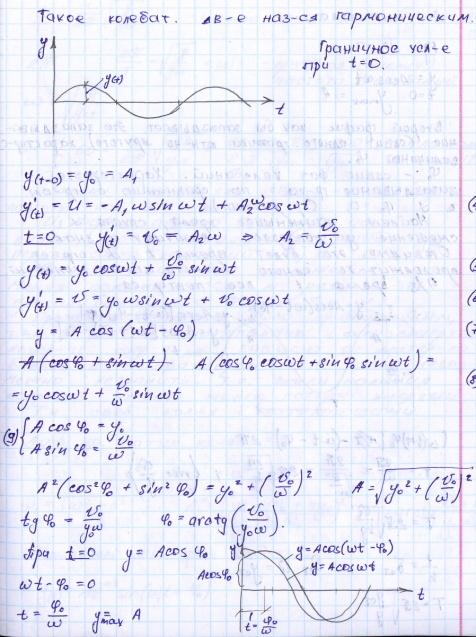 Такое колебат. дв-е наз-ся гармоническим.
y
y(t)
t
Граничное усл-е
при t=0.
y(t=0) = y₀ = A₁
y'(t) = U = -A₁ω sin ωt + A₂ω cos ωt
t=0 y'(t) = v₀ = A₂ω ⇒ A₂ = v₀/ω
y(t) = y₀ cos ωt + v₀/ω sin ωt
y'(t) = v = y₀ ω sin ωt + v₀ cos ωt
y = A cos (ωt - φ₀)
A (cos φ₀ + sin ωt) A (cos φ₀ cos ωt + sin φ₀ sin ωt) =
= y₀ cos ωt + v₀/ω sin ωt
(9) { A cos φ₀ = y₀
A sin φ₀ = v₀/ω
A² (cos² φ₀ + sin² φ₀) = y₀² + (v₀/ω)² A = √(y₀² + (v₀/ω)²)
tg φ₀ = v₀/y₀ω φ₀ = arctg (v₀/y₀ω).
При t=0 y = A cos φ₀
ωt - φ₀ = 0
t = φ₀/ω y max = A
y
y = A cos (ωt - φ₀)
y = A cos ωt
A cos φ₀
t
t = φ₀/ω